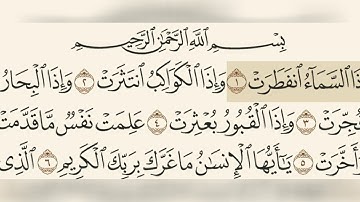 بِسْمِ اللَّهِ الرَّحْمَٰنِ الرَّحِيمِ
ذَا السَّمَاءُ انفَطَرَتْ ١ وَإِذَا الْكَوَاكِبُ انتَثَرَتْ ٢ وَإِذَا الْبِحَارُ
فُجِّرَتْ ٣ وَإِذَا الْقُبُورُ بُعْثِرَتْ ٤ عَلِمَتْ نَفْسٌ مَّا قَدَّمَتْ
وَأَخَّرَتْ ٥ يَا أَيُّهَا الْإِنسَانُ مَا غَرَّكَ بِرَبِّكَ الْكَرِيمِ ٦ الَّذِي